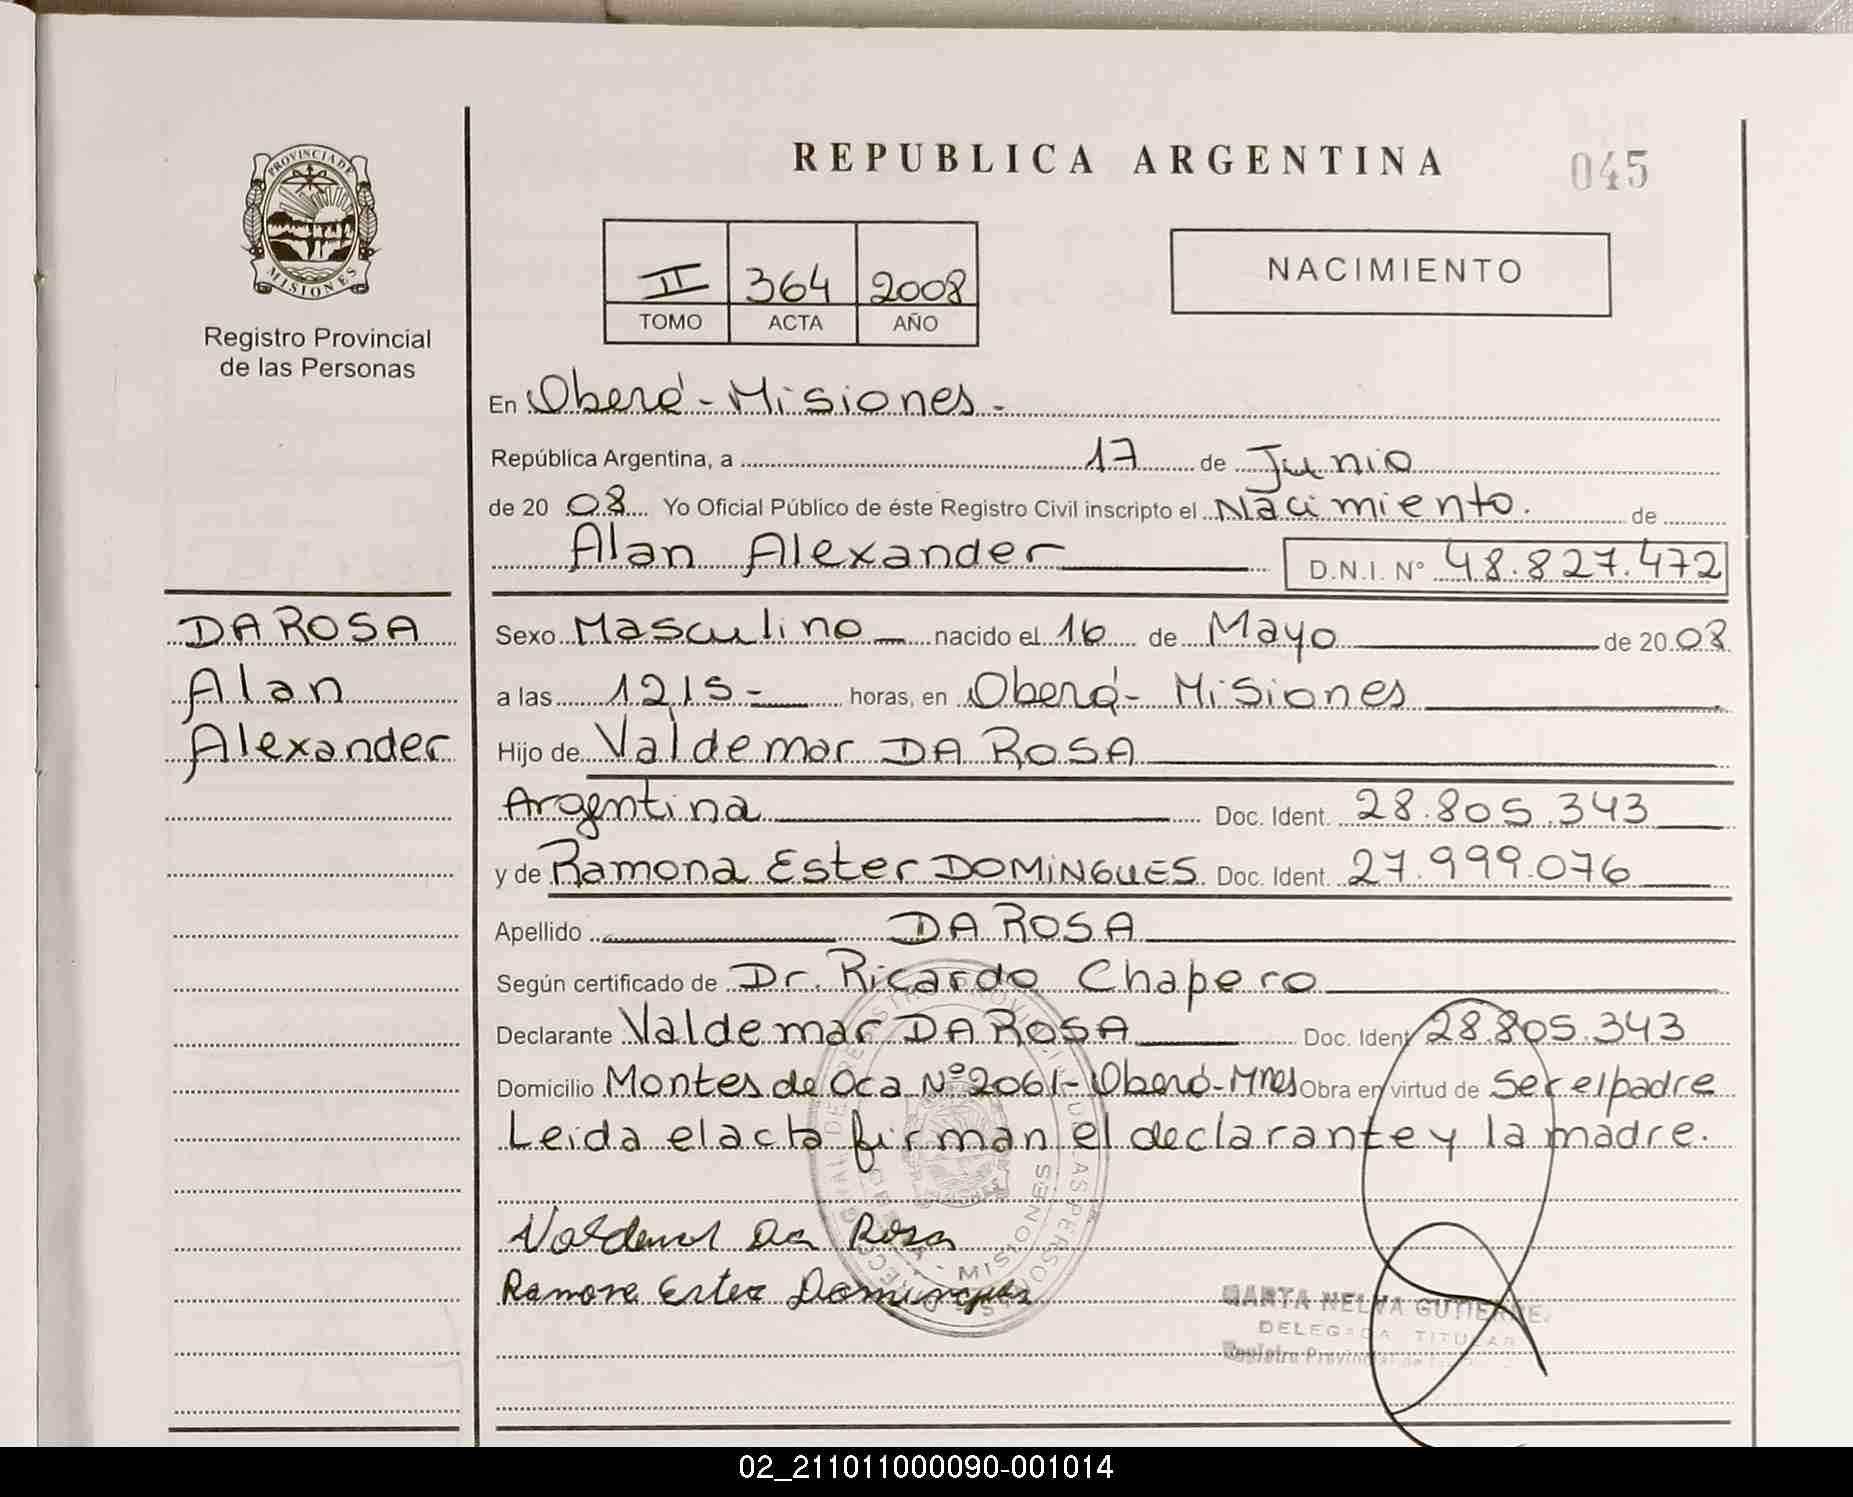 REPUBLICA ARGENTINA
045
PROVINCIA DE
MISIONES
Registro Provincial
de las Personas
II 364 2008
TOMO ACTA AÑO
NACIMIENTO
En Oberá - Misiones.
República Argentina, a 17 de Junio
de 20 08 Yo Oficial Público de éste Registro Civil inscripto el Nacimiento. de
Alan Alexander D.N.I. Nº 48.827.472
DA ROSA
Alan
Alexander
Sexo Masculino nacido el 16 de Mayo de 20 08.
a las 1215- horas, en Oberá- Misiones
Hijo de Valdemar DA ROSA
Argentina Doc. Ident. 28.805.343
y de Ramona Ester DOMINGUES Doc. Ident. 27.999.076
Apellido DA ROSA
Según certificado de Dr. Ricardo Chapero
Declarante Valdemar DA ROSA Doc. Ident 28.805.343
Domicilio Montes de Oca Nº 2061- Oberá- Mnes Obra en virtud de Ser el padre
Leida el acta firman el declarante y la madre.
Valdemar Da Rosa
Ramona Ester Domingues
MISIONES
MARTA NELVA GUTIERRE
DELEGADA TITULAR
Registro Provincial de
02_211011000090-001014